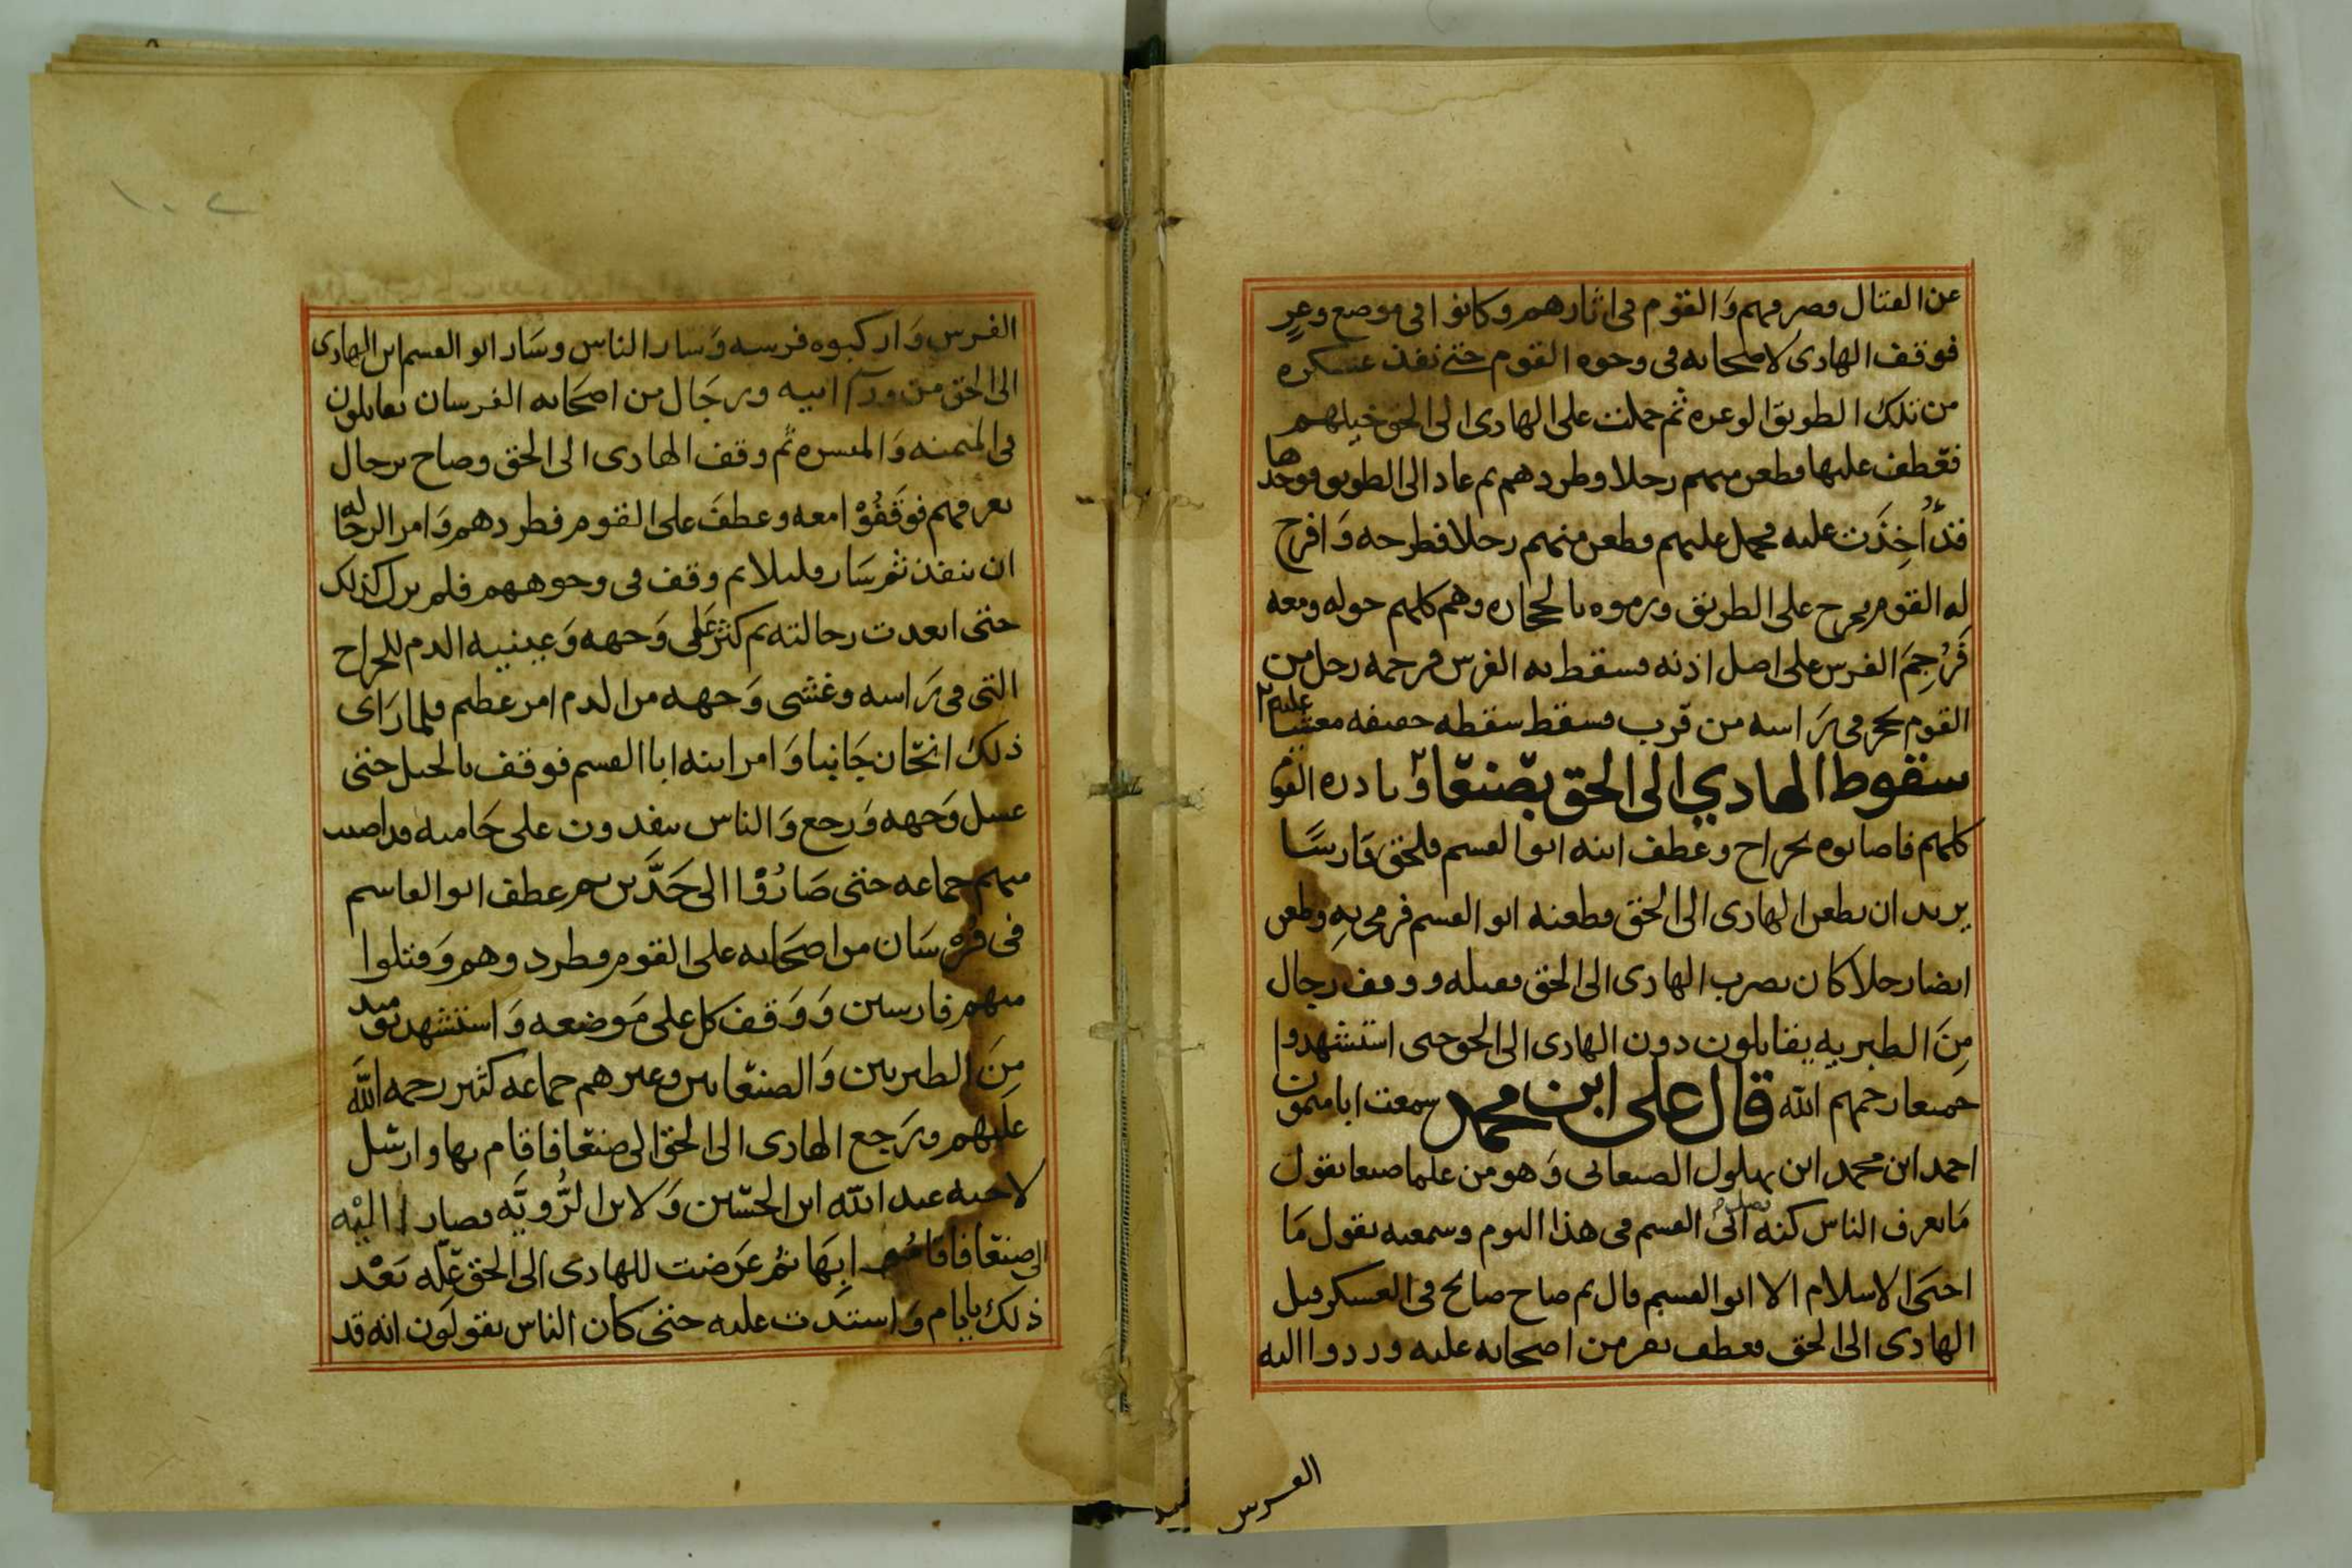 عن القتال وصرفهم وَالقوم فى اثارهم وكانوا فى موضع وعرٍ
فوقف الهادى لاصحابه فى وجوه القوم حتى نفذ عسكره
من تلك الطريق الوعره ثم حملت على الهادى الى الحق خيلهم
فعطف عليها فطعن منهم رجلا وطردهم ثم عاد الى الطريق فوجدها
قد أُخِذَت عليه فحمل عليهم وطعن منهم رجلا فطرحه وَافرج
له القوم فخرج على الطريق ورموه بالحجاره وهم كلهم حوله ومعه
فَرُجِمَ الفرس على اصل اذنه فسقط به الفرس فرجمه رجل من
القوم بحجر فى رَاسه من قرب فسقط سقطه خفيفه مغشيا عليه
سقوط الهادي الى الحق بصنعا وبادره القوم
كلهم فاصابوه بجراح وعطف ابنه ابو القسم فلحق فارسًا
يريد ان يطعن الهادى الى الحق فطعنه ابو القسم فرمى بِهِ وطعن
ايضا رجلا كان يضرب الهادى الى الحق فقتله ووقف رجال
مِنَ الطبريه يقاتلون دون الهادى الى الحق حتى استشهدوا
جميعا رحمهم الله قال على ابن محمد سمعت ابا ميمون
احمد ابن محمد ابن بهلول الصنعانى وَهو من علما صنعا يقول
مَا يعرف الناس كنه فضل ابى القسم فى هذا اليوم وسمعته يقول مَا
احيَى الاسلام الا ابو القسم قال ثم صاح صائح فى العسكر قتل
الهادى الى الحق فعطف نفر من اصحابه عليه وردوا اليه
الفرس
الفرس وَاركبوه فرسه وَسار الناس وسَار ابو القسم ابن الهادى
الى الحق من ورآ ابيه ورجَال من اصحَابه الفرسان يقاتلون
فى الميمنه وَالميسره ثم وقف الهادى الى الحق وصاح برجال
يعرفهم فوَقَفُوْا معه وعطفَ على القوم فطردهم وَامر الرجاله
ان تنفذ ثم سَار قليلا ثم وقف فى وجوههم فلم يزل كذلك
حتى ابعدت رجالته ثم كثر عَلى وَجهه وَعينيه الدم للجراح
التى فى رَاسه وغشى وَجهه من الدم امر عظيم فلما رَاى
ذلك انحَان جَانبا وَامر ابنه ابا القسم فوقف بالخيل حتى
غسل وَجهه وَرجع وَالناس ينفدون على حَاميه قد اصيب
منهم جماعه حتى صَارُوْا الى حَدَّين ثم عطف ابو القاسم
فى فُرْسَان من اصحَابه على القوم فطردوهم وَقتلوا
منهم فارسين وَوَقفَ كل على مَوضعه وَاستشهد يوميذ
مِنَ الطبريين وَالصنعانيين وغيرهم جماعه كثير رحمه الله
عليهم ورَجع الهادى الى الحق الى صنعا فاقام بها وارسَل
لاخيه عبد الله ابن الحسَين وَلابن الرُّويَّه فصارا اليْه
الى صنعا فاقاموا بِهَا ثم عَرَضت للهادى الى الحق علَّه بَعْد
ذلك بايام وَاشتدت عليه حتى كان الناس يقولَون انه قد
١٠٢